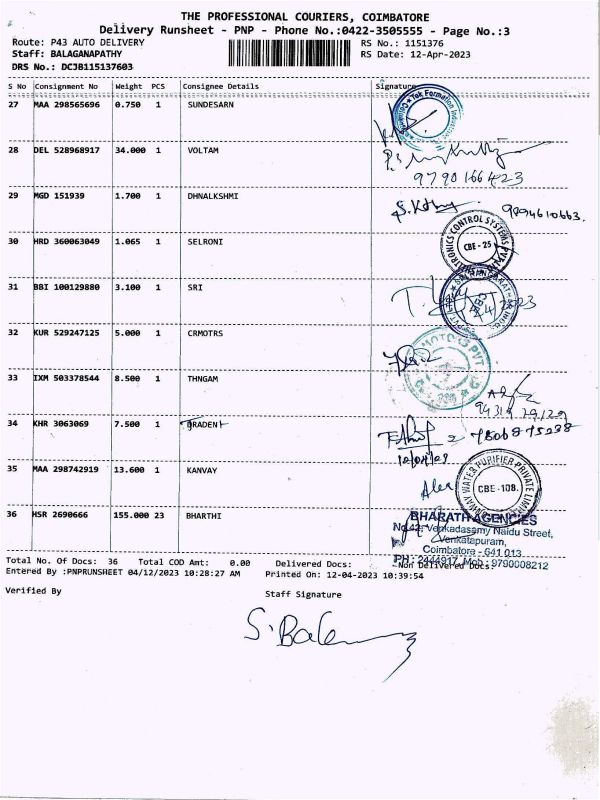 THE PROFESSIONAL COURIERS, COIMBATORE
Delivery Runsheet - PNP - Phone No.:0422-3505555 - Page No.:3
Route: P43 AUTO DELIVERY RS No.: 1151376
Staff: BALAGANAPATHY RS Date: 12-Apr-2023
DRS No.: DCJB115137603
S No Consignment No Weight PCS Consignee Details Signature
27 MAA 298565696 0.750 1 SUNDESARN
28 DEL 528968917 34.000 1 VOLTAM
9790166423
29 MGD 151939 1.700 1 DHNALKSHMI
9894610663.
30 HRD 360063049 1.065 1 SELRONI
CBE - 25
31 BBI 100129880 3.100 1 SRI
32 KUR 529247125 5.000 1 CRMOTRS
33 IXM 503378544 8.500 1 THNGAM
34 KHR 3063069 7.500 1 TRADENT
35 MAA 298742919 13.600 1 KANVAY
WATER PURIFIER PRIVATE
CBE - 108.
36 HSR 2690666 155.000 23 BHARTHI
BHARATH AGENCIES
No.42, Venkadasamy Naidu Street,
Venkatapuram,
Coimbatore - 641 013
PH : 2444917, Mob : 9790008212
Total No. Of Docs: 36 Total COD Amt: 0.00 Delivered Docs: Non Delivered Docs:
Entered By :PNPRUNSHEET 04/12/2023 10:28:27 AM Printed On: 12-04-2023 10:39:54
Verified By Staff Signature
S. Bala